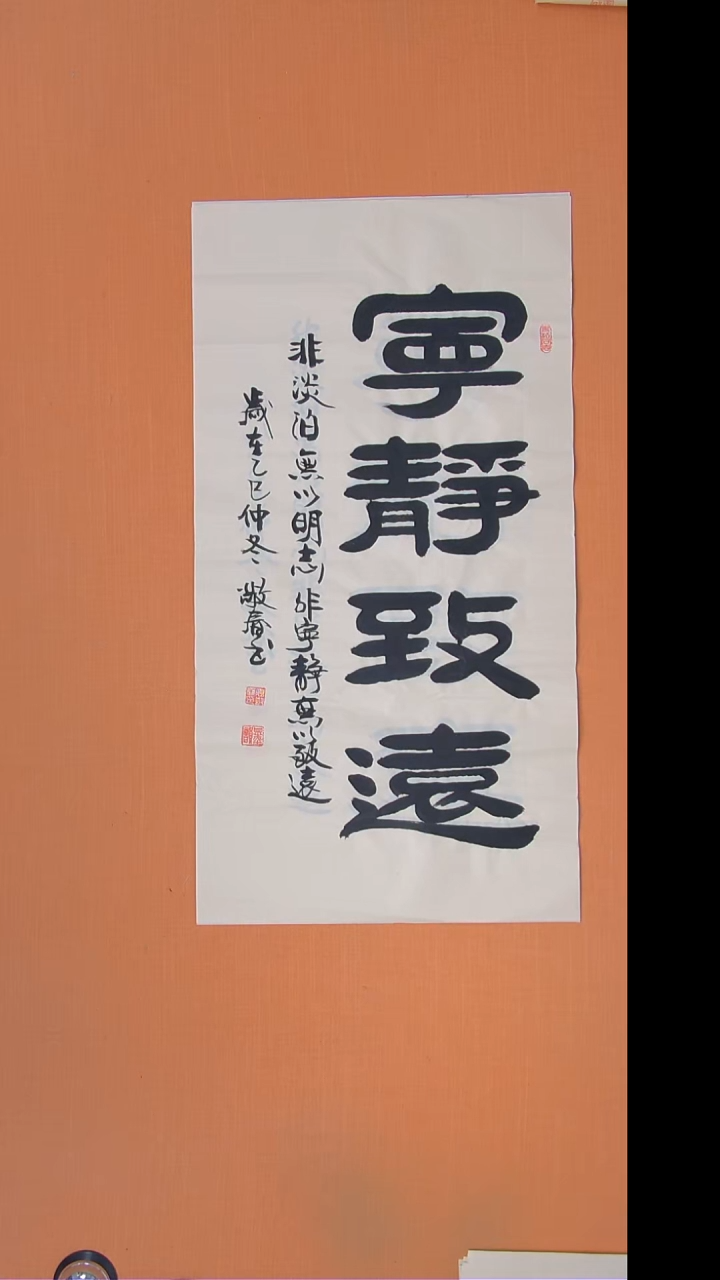 寧靜致遠
非淡泊無以明志非寧靜無以致遠
歲在乙巳仲冬 敬齋書